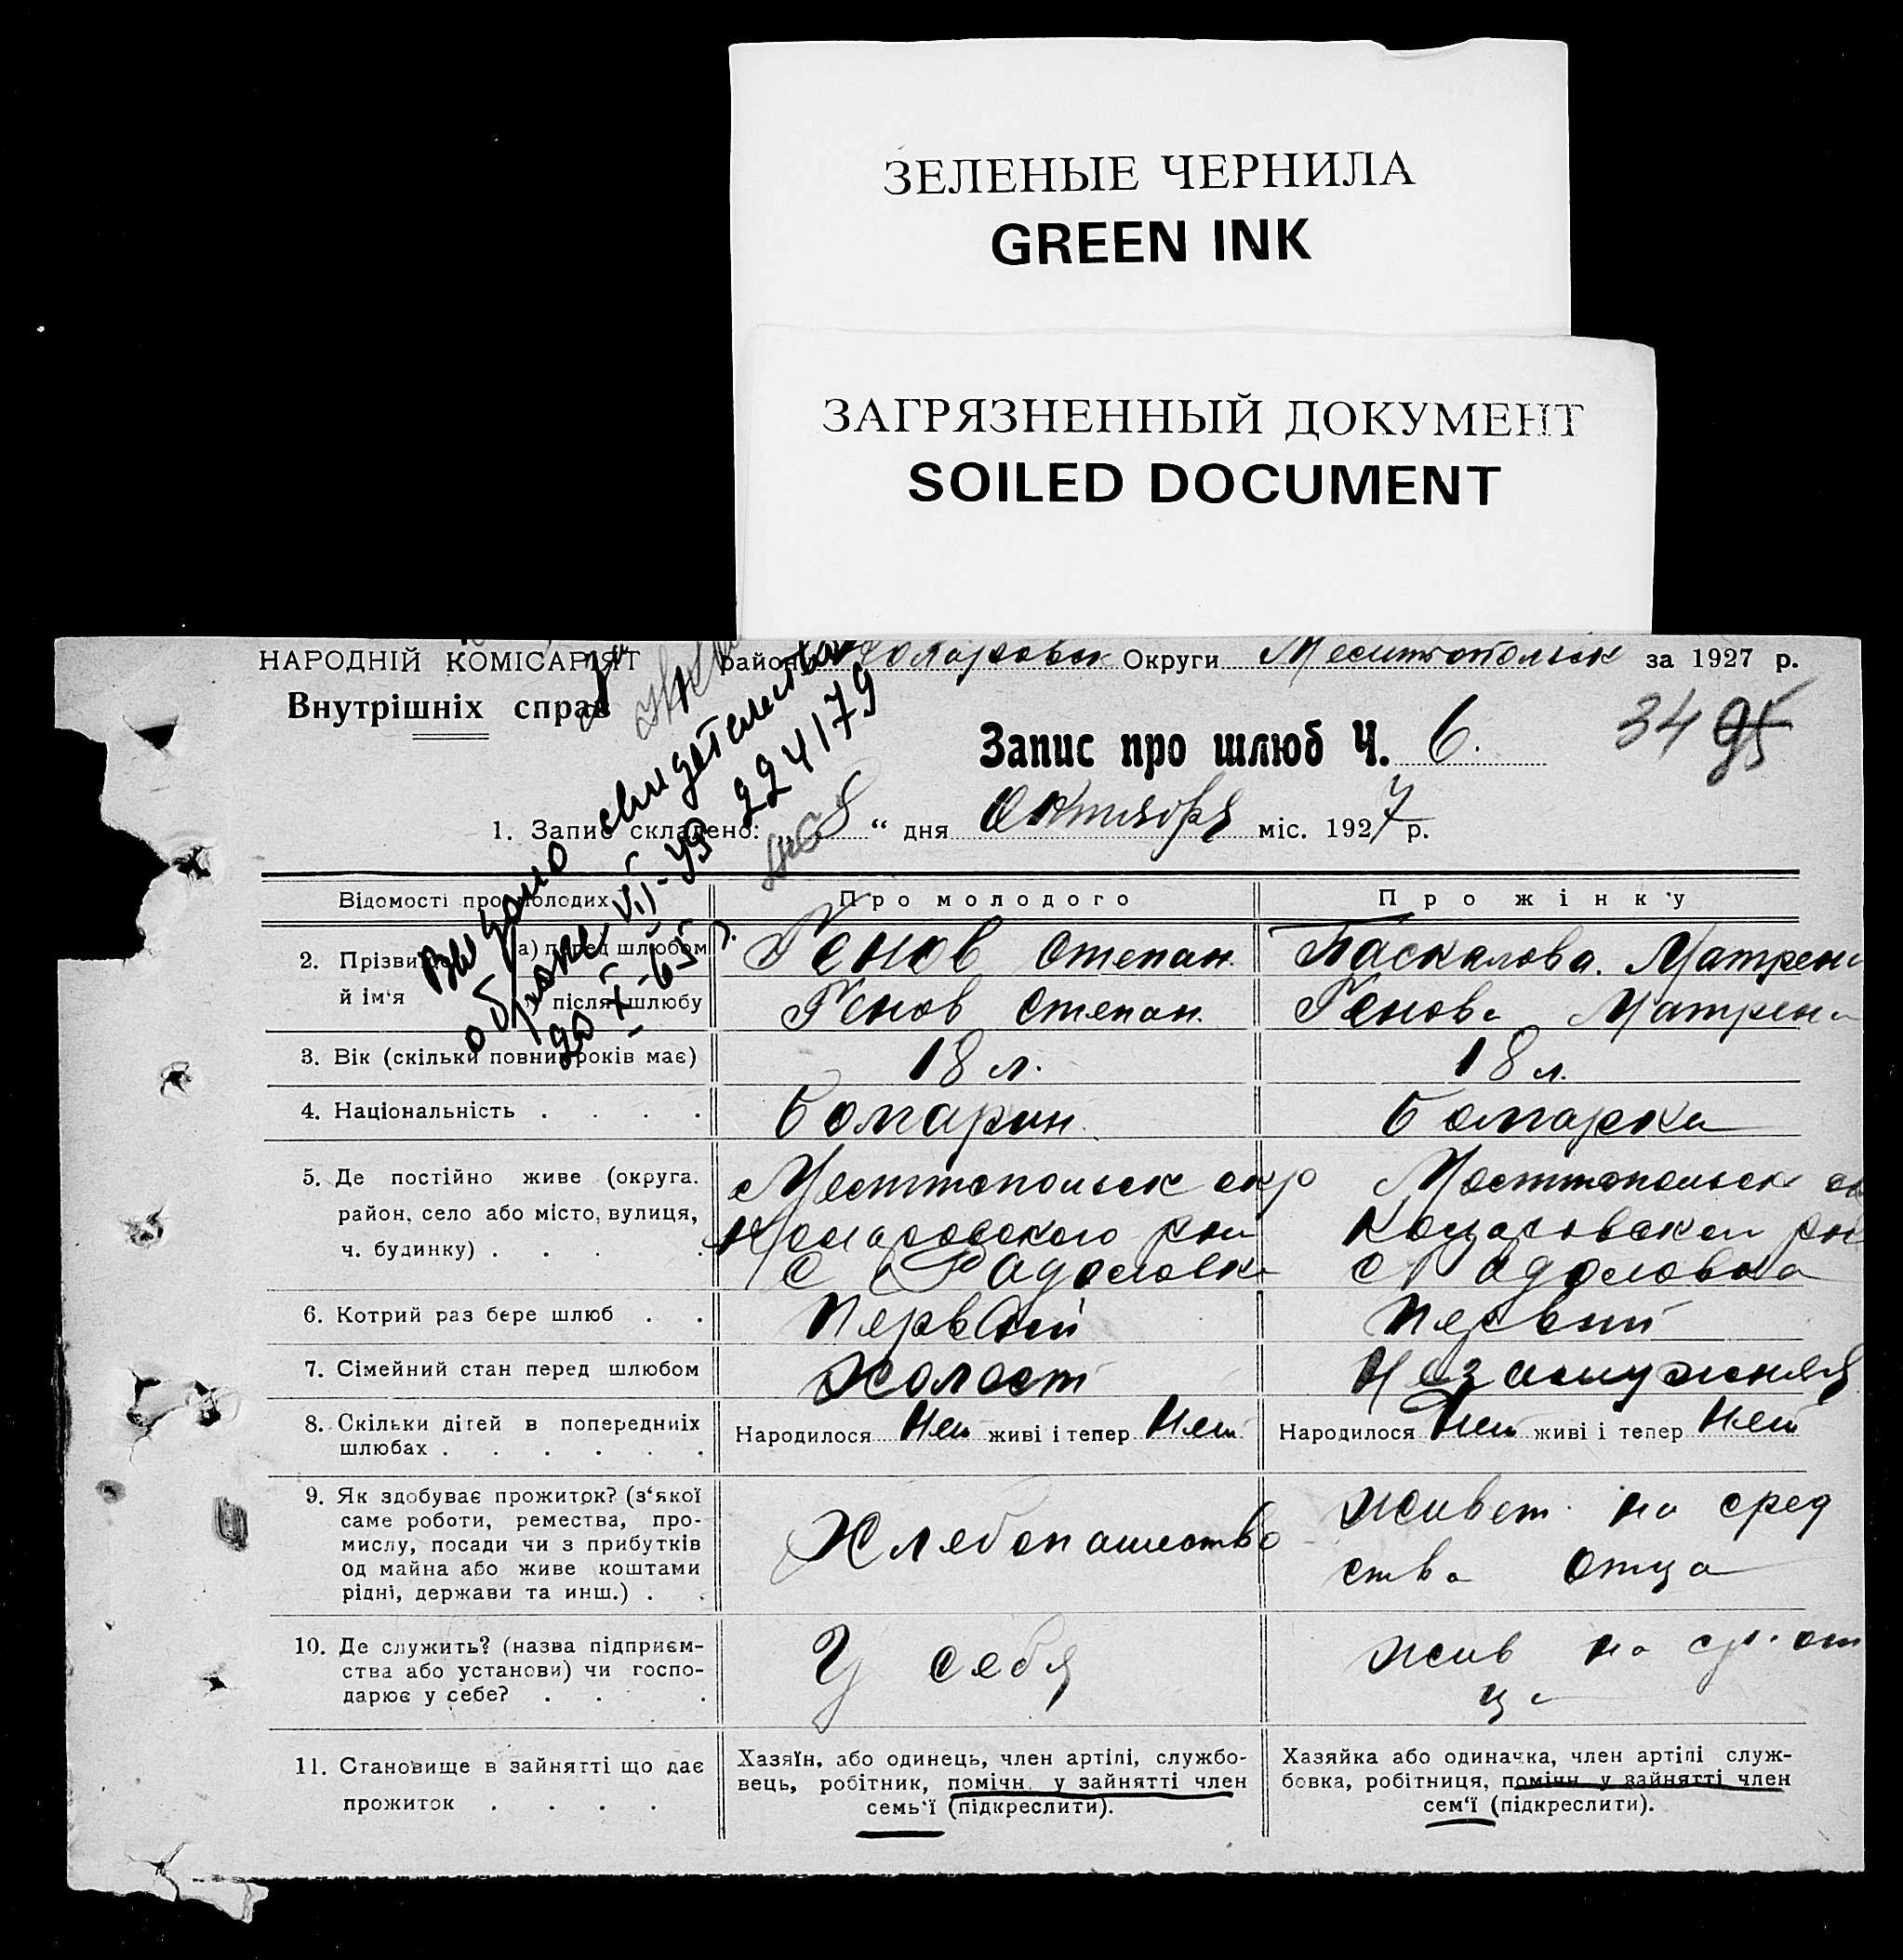 ЗЕЛЕНЫЕ ЧЕРНИЛА
GREEN INK
ЗАГРЯЗНЕННЫЙ ДОКУМЕНТ
SOILED DOCUMENT
НАРОДНІЙ КОМІСАРІЯТ
Внутрішніх справ
Округи за 1927 р.
Запис про шлюб Ч. 6.
34 95
1. Запис складено: 8 “ дня Октября міс. 1927 р.
Выдано свидетельство
224179
Відомості про молодих
Про молодого
Про жінк'у
2. Прізвище й ім'я
а) перед шлюбом
Генов Степан
Паскалова. Матрена
після шлюбу
Генов Степан
Генова Матрена
3. Вік (скільки повних років має)
18 л.
18 л.
4. Національність . . . .
болгарин
болгарка
5. Де постійно живе (округа.
район, село або місто, вулиця,
ч. будинку) . . . .
окр
с
с
6. Котрий раз бере шлюб . .
Первый
Первый
7. Сімейний стан перед шлюбом
Холост
Незамужняя
8. Скільки дітей в попередніх
шлюбах . . . . . .
Народилося Нет живі і тепер Нет
Народилося Нет живі і тепер Нет
9. Як здобуває прожиток? (з‘якої
саме роботи, ремества, про-
мислу, посади чи з прибутків
од майна або живе коштами
рідні, держави та инш.) . .
Хлебопашество
живет на сред
ства отца
10. Де служить? (назва підприєм-
ства або установи) чи госпо-
дарює у себе? . . .
У себя
жив на ср. от
ца
11. Становище в зайнятті що дає
прожиток . . . .
Хазяїн, або одинець, член артілі, службо-
вець, робітник, помічн. у зайнятті член
семь‘ї (підкреслити).
Хазяйка або одиначка, член артілі служ-
бовка, робітниця, помічн. у зайнятті член
сем‘ї (підкреслити).